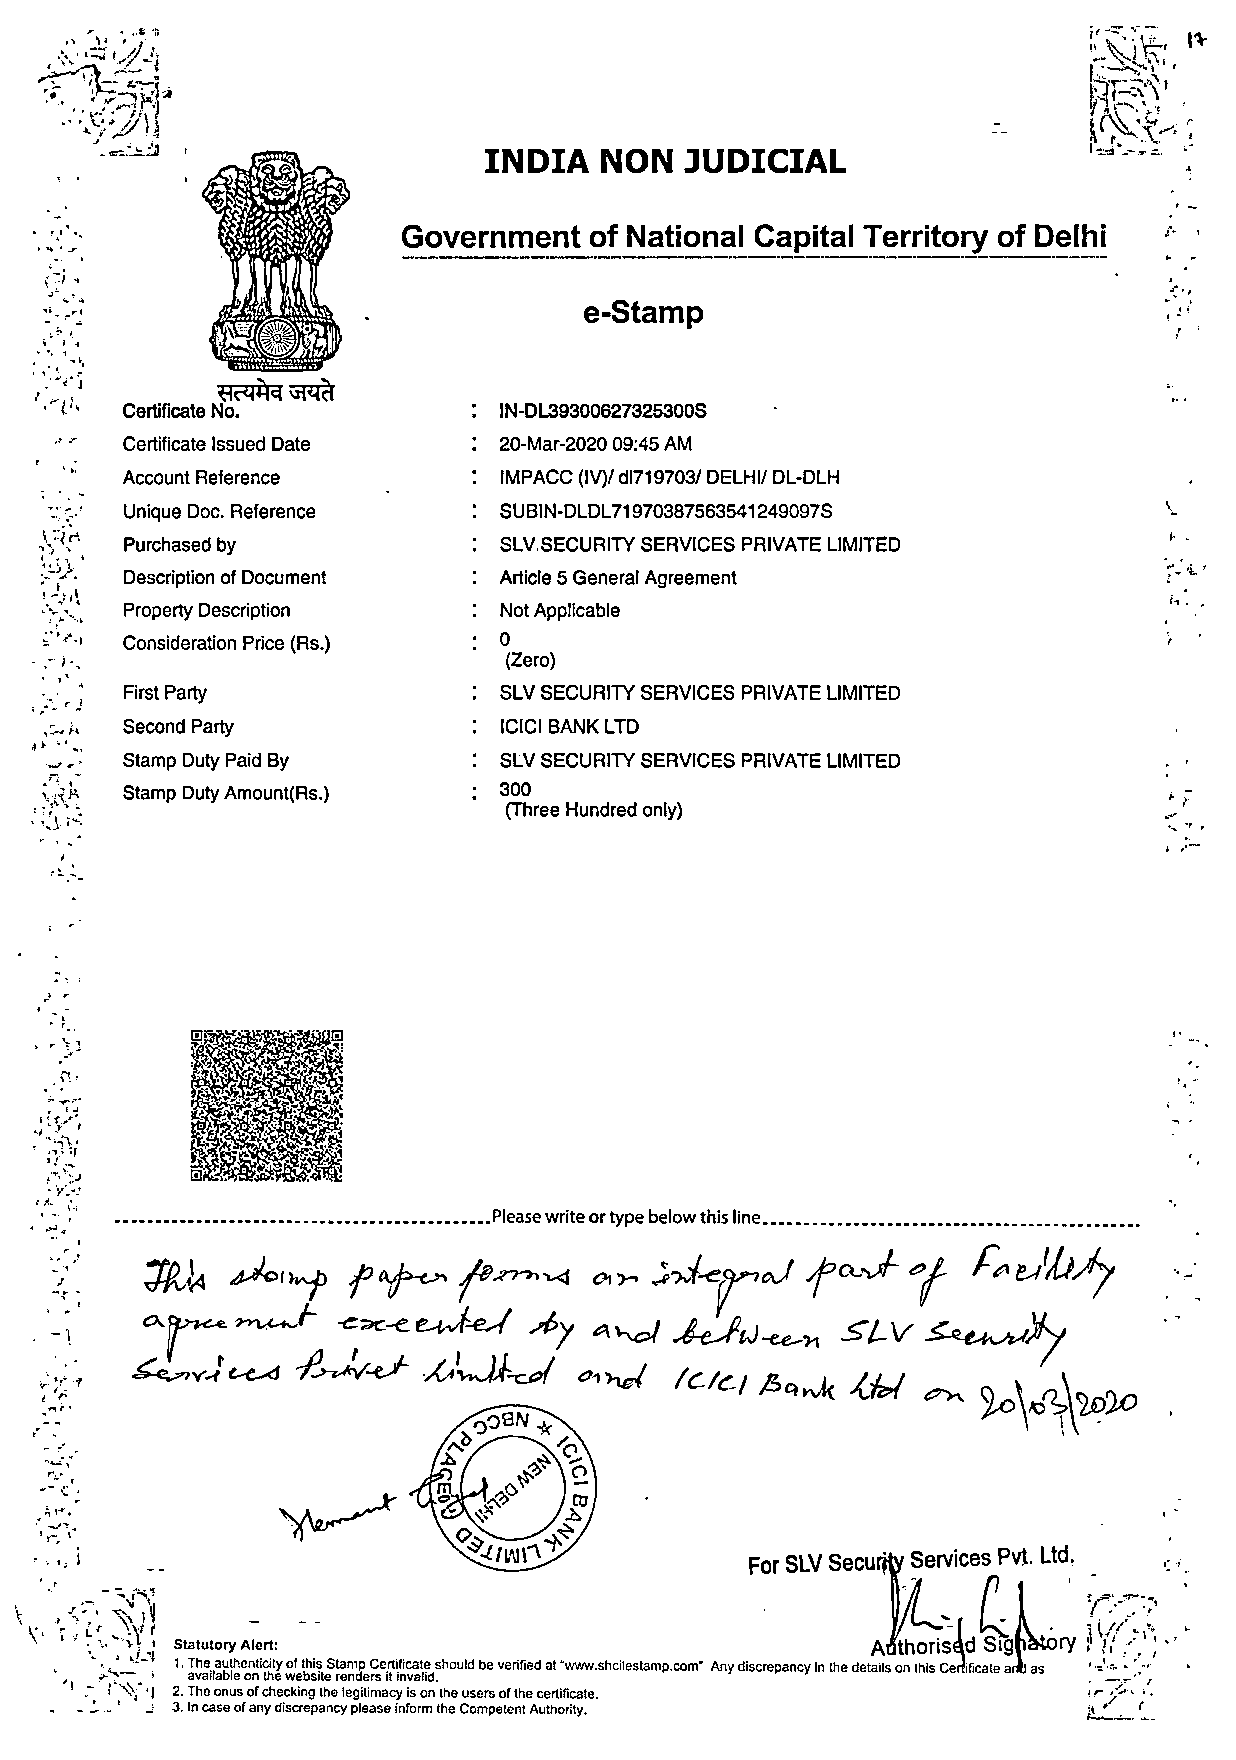 17
INDIA NON JUDICIAL
Government of National Capital Territory of Delhi
e-Stamp
सत्यमेव जयते
Certificate No. : IN-DL39300627325300S
Certificate Issued Date : 20-Mar-2020 09:45 AM
Account Reference : IMPACC (IV)/ dl719703/ DELHI/ DL-DLH
Unique Doc. Reference : SUBIN-DLDL71970387563541249097S
Purchased by : SLV SECURITY SERVICES PRIVATE LIMITED
Description of Document : Article 5 General Agreement
Property Description : Not Applicable
Consideration Price (Rs.) : 0
(Zero)
First Party : SLV SECURITY SERVICES PRIVATE LIMITED
Second Party : ICICI BANK LTD
Stamp Duty Paid By : SLV SECURITY SERVICES PRIVATE LIMITED
Stamp Duty Amount(Rs.) : 300
(Three Hundred only)
Please write or type below this line
This stamp paper forms an integral part of Facility
agreement executed by and between SLV Security
Services Privet Limited and ICICI Bank Ltd on 20/03/2020
ICICI BANK LIMITED ★ NBCC PLACE
NEW DELHI
Hemant
For SLV Security Services Pvt. Ltd.
Authorised Signatory
Statutory Alert:
1. The authenticity of this Stamp Certificate should be verified at "www.shcilestamp.com" Any discrepancy in the details on this Certificate and as
available on the website renders it invalid.
2. The onus of checking the legitimacy is on the users of the certificate.
3. In case of any discrepancy please inform the Competent Authority.